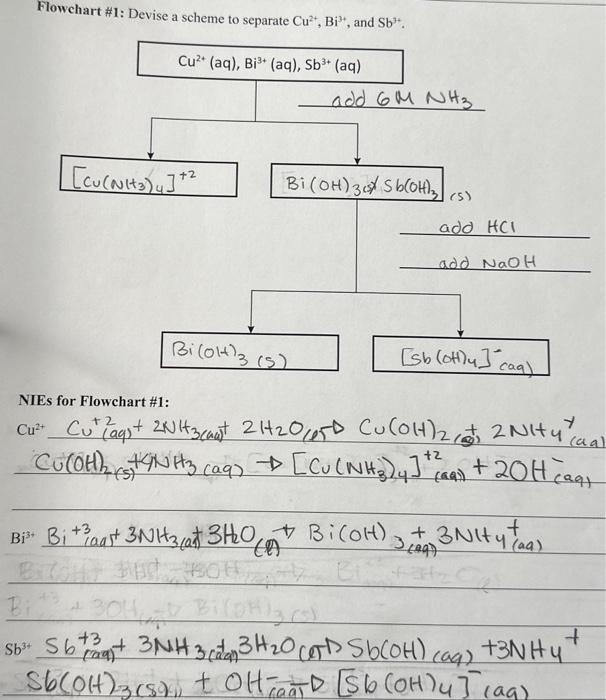 Flowchart #1: Devise a scheme to separate Cu²⁺, Bi³⁺, and Sb³⁺.
Cu²⁺ (aq), Bi³⁺ (aq), Sb³⁺ (aq)
add 6M NH₃
[Cu(NH₃)₄]⁺²
Bi(OH)₃(s) Sb(OH)₃ (s)
add HCl
add NaOH
Bi(OH)₃ (s)
[Sb(OH)₄]⁻(aq)
NIEs for Flowchart #1:
Cu²⁺ Cu⁺²(aq) + 2NH₃(aq) + 2H₂O(l) → Cu(OH)₂(s) + 2NH₄⁺(aq)
Cu(OH)₂(s) + 4NH₃(aq) → [Cu(NH₃)₄]⁺²(aq) + 2OH⁻(aq)
Bi³⁺ Bi⁺³(aq) + 3NH₃(aq) + 3H₂O(l) → Bi(OH)₃(aq) + 3NH₄⁺(aq)
Bi⁺³ + 3OH → Bi(OH)₃(s)
Sb³⁺ Sb⁺³(aq) + 3NH₃(aq) + 3H₂O(l) → Sb(OH)(aq) + 3NH₄⁺
Sb(OH)₃(s) + OH⁻(aq) → [Sb(OH)₄]⁻(aq)